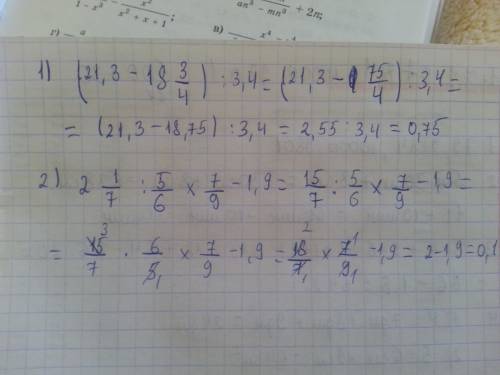 1 - x³   x² + x + 1 ;   an³ - mn³ + 2n;
г)   a   п)   x⁴
1) (21,3 - 18 3/4) : 3,4 = (21,3 - 75/4) : 3,4 =
= (21,3 - 18,75) : 3,4 = 2,55 : 3,4 = 0,75
2) 2 1/7 : 5/6 × 7/9 - 1,9 = 15/7 : 5/6 × 7/9 - 1,9 =
= 15³/7 · 6/5₁ × 7/9 - 1,9 = 18²/7₁ × 7¹/9₁ - 1,9 = 2 - 1,9 = 0,1